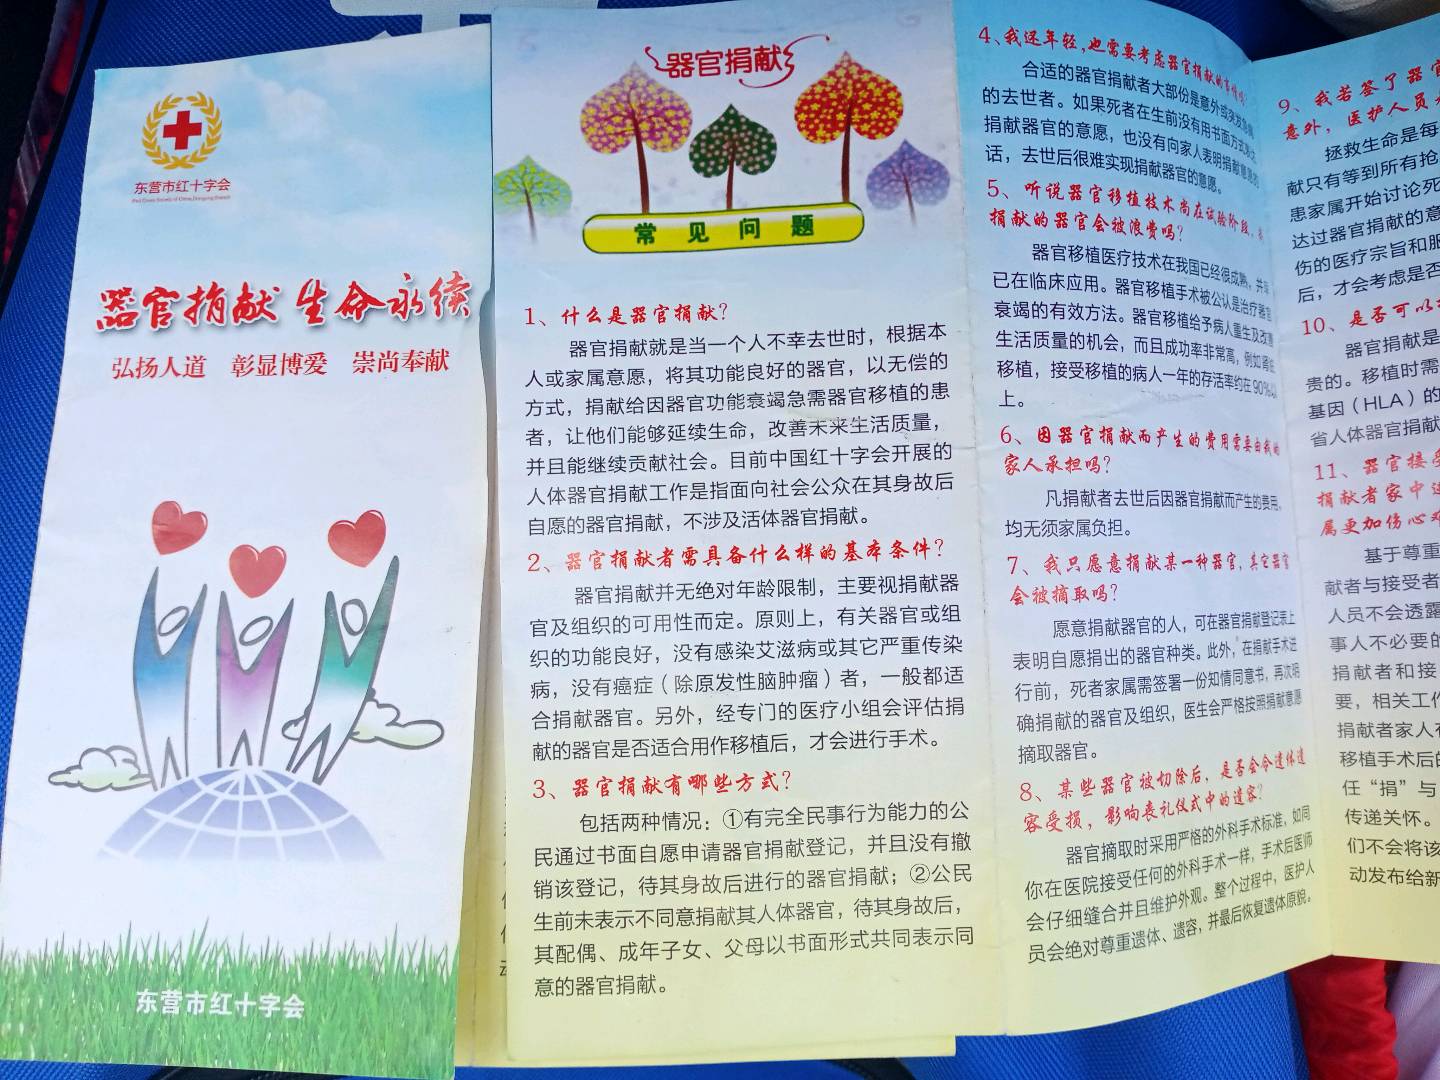 东营市红十字会
Red Cross Society of China,Dongying Branch
器官捐献 生命永续
弘扬人道 彰显博爱 崇尚奉献
东营市红十字会
器官捐献
常见问题
1、什么是器官捐献?
器官捐献就是当一个人不幸去世时，根据本
人或家属意愿，将其功能良好的器官，以无偿的
方式，捐献给因器官功能衰竭急需器官移植的患
者，让他们能够延续生命，改善未来生活质量，
并且能继续贡献社会。目前中国红十字会开展的
人体器官捐献工作是指面向社会公众在其身故后
自愿的器官捐献，不涉及活体器官捐献。
2、器官捐献者需具备什么样的基本条件?
器官捐献并无绝对年龄限制，主要视捐献器
官及组织的可用性而定。原则上，有关器官或组
织的功能良好，没有感染艾滋病或其它严重传染
病，没有癌症（除原发性脑肿瘤）者，一般都适
合捐献器官。另外，经专门的医疗小组会评估捐
献的器官是否适合用作移植后，才会进行手术。
3、器官捐献有哪些方式?
包括两种情况：①有完全民事行为能力的公
民通过书面自愿申请器官捐献登记，并且没有撤
销该登记，待其身故后进行的器官捐献；②公民
生前未表示不同意捐献其人体器官，待其身故后，
其配偶、成年子女、父母以书面形式共同表示同
意的器官捐献。
4、我还年轻,也需要考虑器官捐献的事情吗?
合适的器官捐献者大部份是意外或突发
的去世者。如果死者在生前没有用书面方式表达
捐献器官的意愿，也没有向家人表明捐献意愿的
话，去世后很难实现捐献器官的意愿。
5、听说器官移植技术尚在试验阶段，
捐献的器官会被浪费吗?
器官移植医疗技术在我国已经很成熟，并
已在临床应用。器官移植手术被公认是治疗器官
衰竭的有效方法。器官移植给予病人重生及改善
生活质量的机会，而且成功率非常高，例如肾脏
移植，接受移植的病人一年的存活率约在90%以
上。
6、因器官捐献而产生的费用需要由我的
家人承担吗?
凡捐献者去世后因器官捐献而产生的费用，
均无须家属负担。
7、我只愿意捐献某一种器官,其它器官
会被摘取吗?
愿意捐献器官的人，可在器官捐献登记表上
表明自愿捐出的器官种类。此外，在捐献手术进
行前，死者家属需签署一份知情同意书，再次明
确捐献的器官及组织，医生会严格按照捐献意愿
摘取器官。
8、某些器官被切除后，是否会令遗体遗
容受损，影响丧礼仪式中的遗容?
器官摘取时采用严格的外科手术标准，如同
你在医院接受任何的外科手术一样，手术后医师
会仔细缝合并且维护外观。整个过程中，医护人
员会绝对尊重遗体、遗容，并最后恢复遗体原貌。
9、我若签了器官
意外，医护人员
拯救生命是每
献只有等到所有抢
患家属开始讨论死
达过器官捐献的意
伤的医疗宗旨和服
后，才会考虑是否
10、是否可以
器官捐献是
贵的。移植时需
基因（HLA）的
省人体器官捐献
11、器官接受
捐献者家中
属更加伤心
基于尊重
献者与接受者
人员不会透露
事人不必要的
捐献者和接
要，相关工作
捐献者家人有
移植手术后的
任“捐”与
传递关怀。
们不会将该
动发布给新